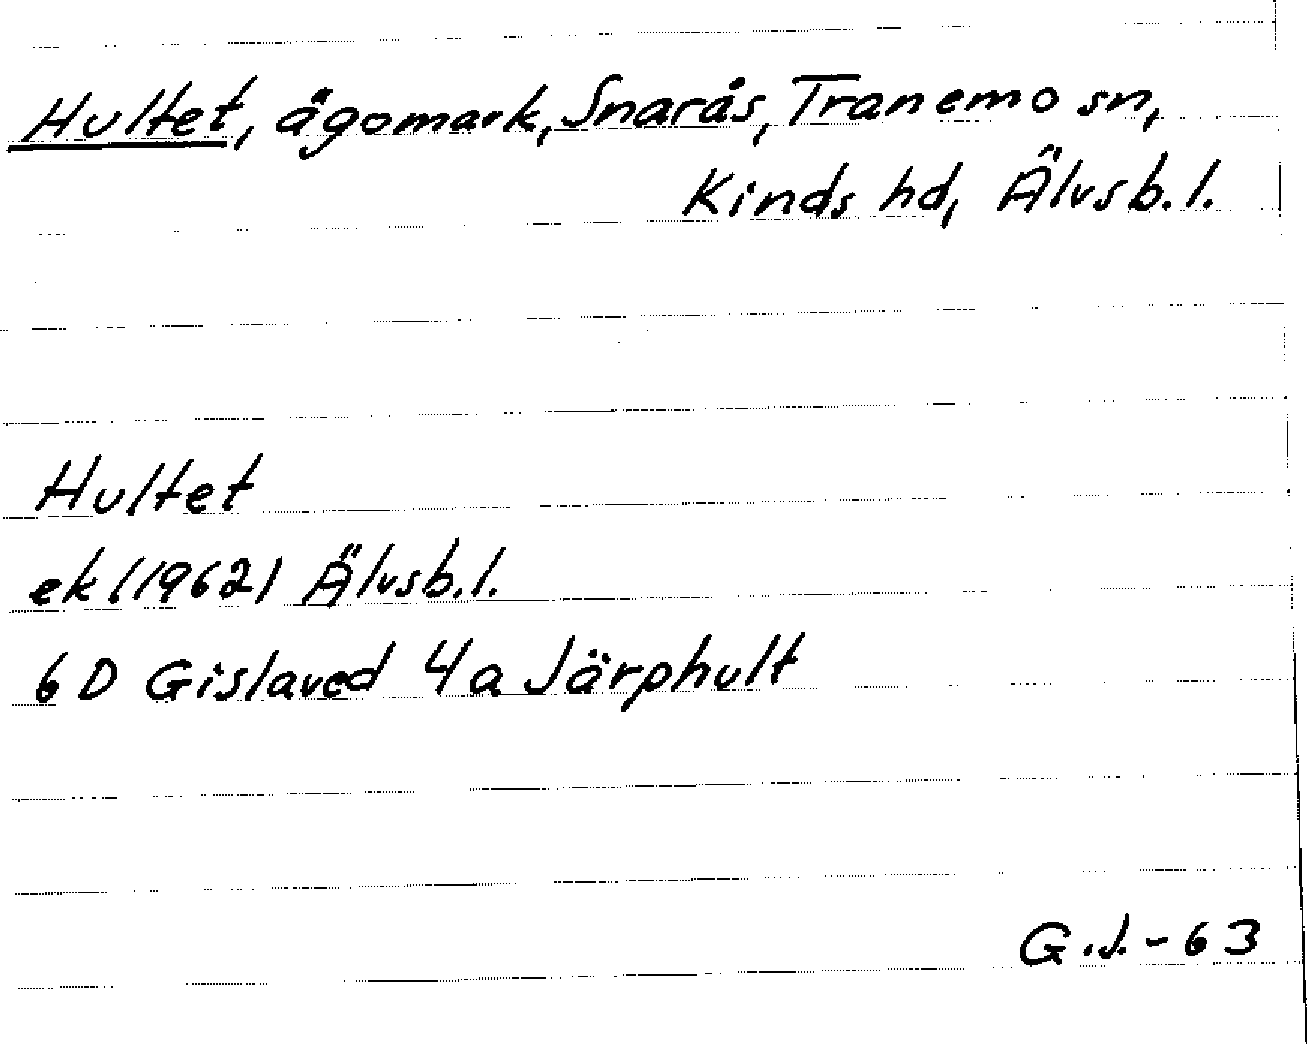 Hultet, ägomark, Snarås, Tranemo sn,
Kinds hd, Älvsb. l.
Hultet
ek (1962) Älvsb. l.
6 D Gislaved 4 a Järphult
G.J.-63